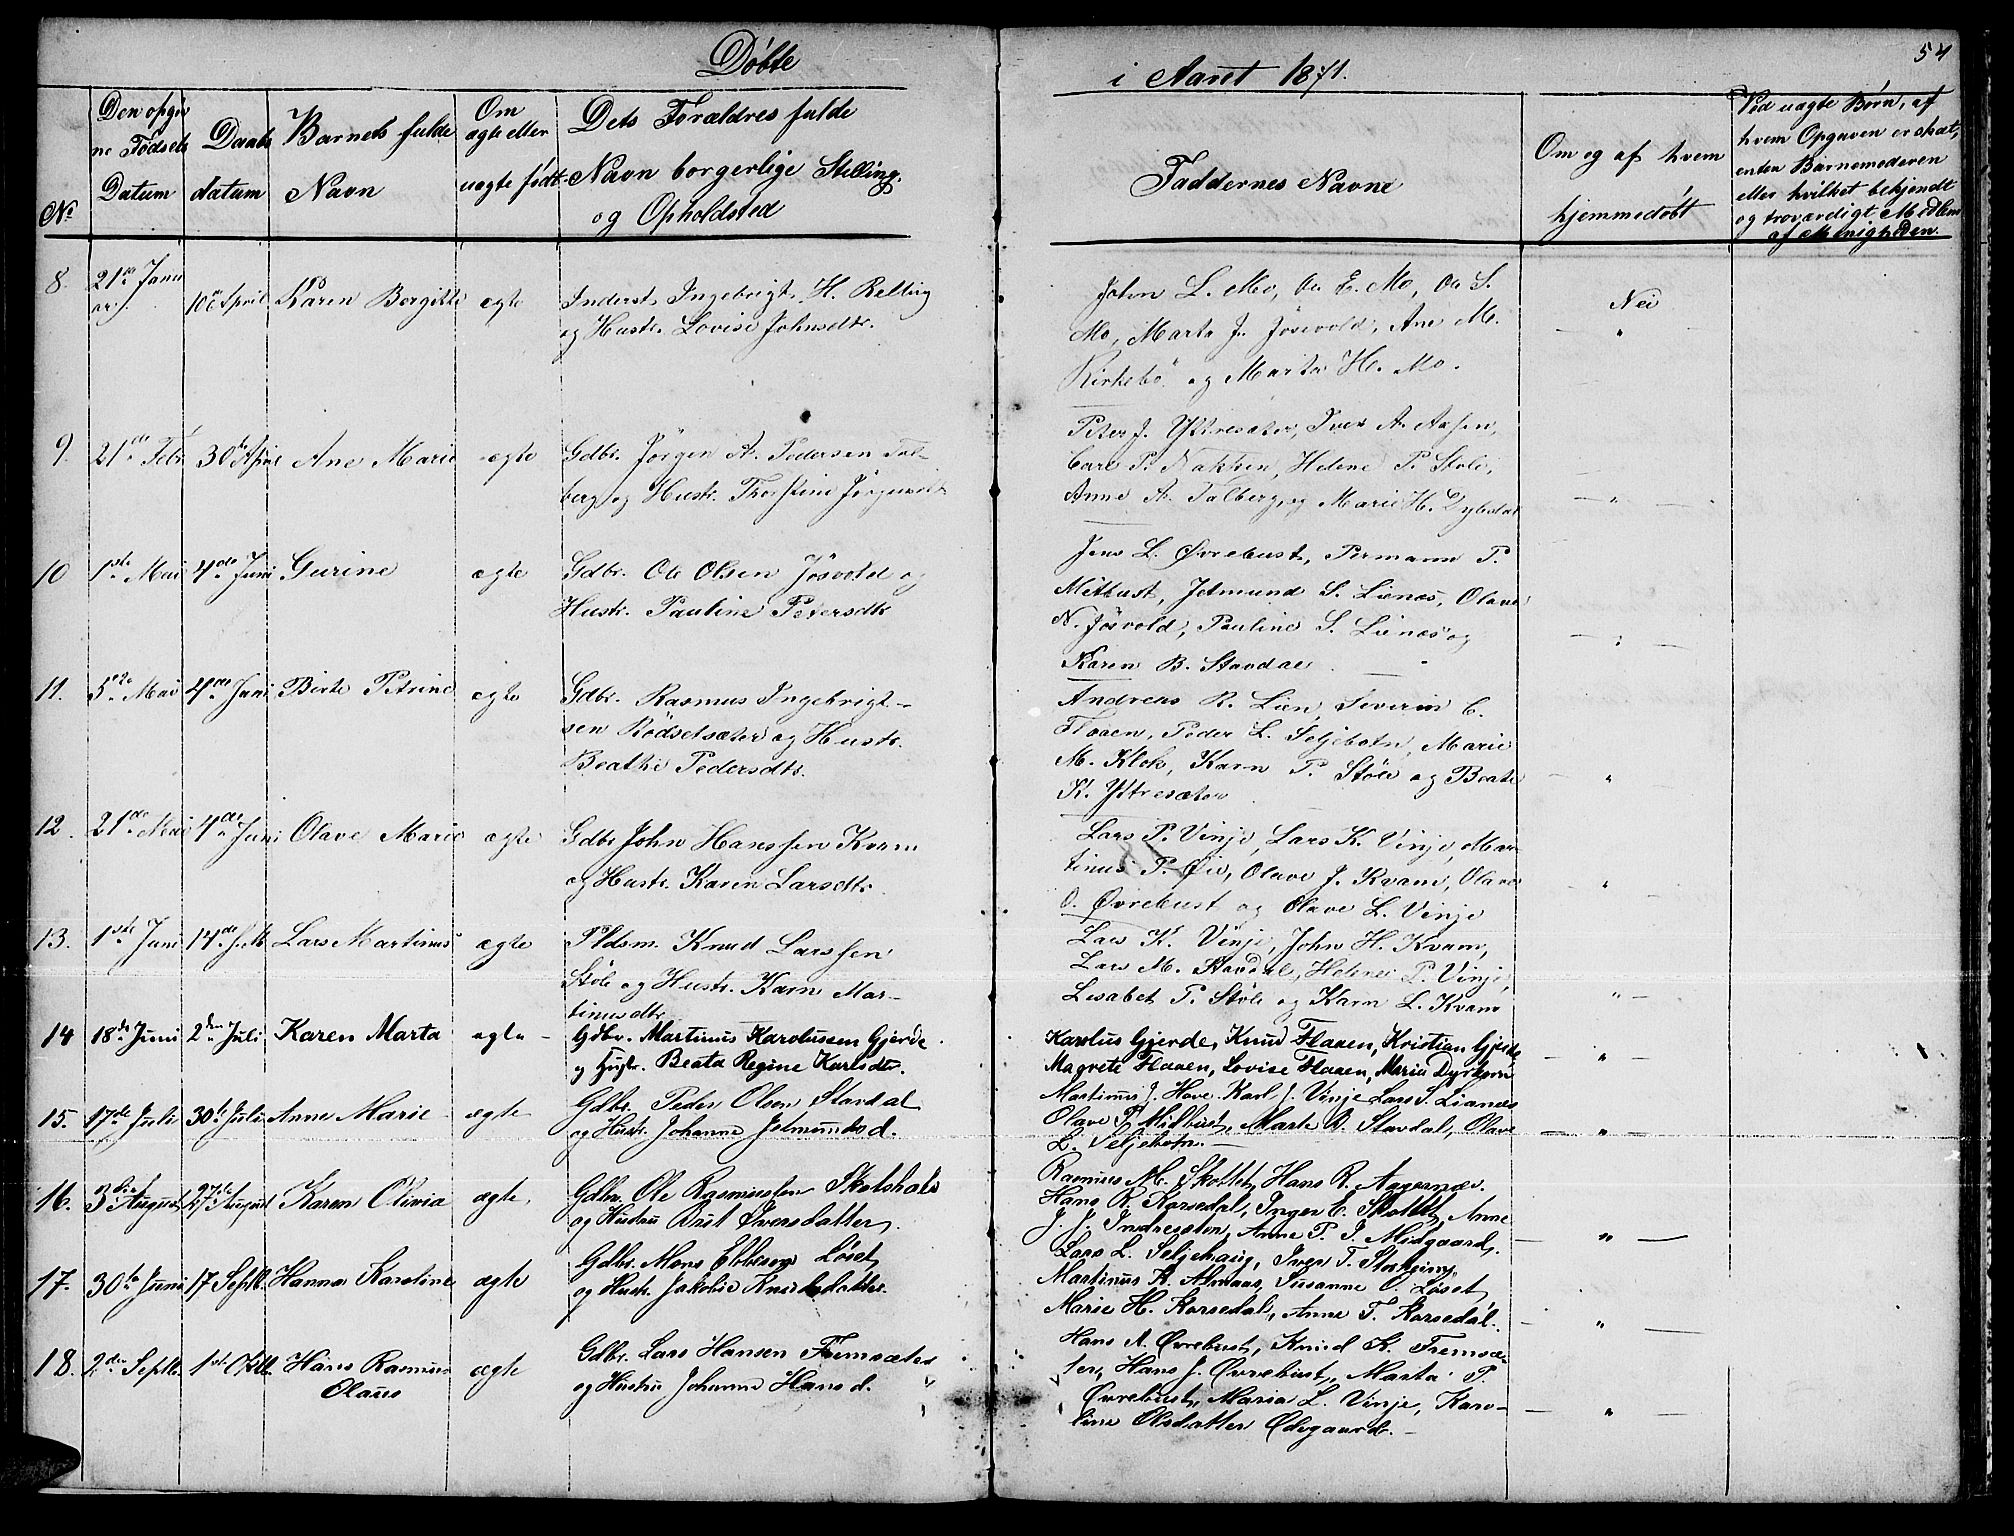 54
Døbte
i Aaret 1871.
No
Den opgiv
ne Fødsels
Datum
Daabs
datum
Barnets fulde
Navn
Om
ægte eller
uægte født
Dets Forældres fulde
Navn borgerlige Stilling
og Opholdsted
Faddernes Navne
Om og af hvem
hjemmedøbt
Ved uægte Børn, af
hvem Opgaven er skæt,
enten Barnemoderen
eller hvilket bekjendt
og troværdigt Medlem
af Menigheden.
8 21de Janu
ar 10de April Karen Bergitte ægte
Inderst Ingebrigt H. Relling
og Hustr. Lovise Johnsdtr.
John L. Mo, Ole E. Mo, Ole S.
Mo, Marta J. Jösvold, Ane M.
Kirkebö og Marta H. Mo.
Nei
9. 21de Febr 30te April Ane Marie ægte
Gdbr. Jörgen A. Pedersen Tal-
berg og Hustr. Thorstine Jörgensdtr
Peter J. Yttresæter, Iver A. Aasen,
Carl P. Nakken, Helene P. Stöle,
Anne A. Talberg, og Marie H. Dybdal
— " —
10 1ste Mai 4de Juni Gurine ægte
Gdbr. Ole Olsen Jösvold og
Hustr. Pauline Petersdtr
Jens L. Øvrebust, Permann P.
Mitbust, Jetmund S. Lienæs, Olave
N. Jösvold, Pauline S. Lienæs og
Karen B. Stavdal
— " —
11. 5te Mai 4de Juni Birte Petrine ægte
Gdbr. Rasmus Ingebrigt-
sen Rödsetsæter og Hustr.
Beathe Pedersdtr.
Andreas R. Lien, Severin C.
Flaaen, Peder L. Seljebotn, Marie
M. Klok, Karn P. Stöle og Beate
K. Yttresæter
— " —
12. 21de Mai 4de Juni Olave Marie ægte
Gdbr John Hanssen Kvam
og Hustr. Karen Larsdtr.
Lars P. Vinje, Lars K. Vinje, Mar-
tinus P. Øie, Olave J. Kvam, Olave
O. Øvrebust og Olave L. Vinje
" —
13. 1ste Juni 14de Juli Lars Martinus ægte
Pldsm. Knud Larssen
Stöle og Hustr. Karn Mar-
tinusdtr.
Lars K. Vinje, John H. Kvam,
Lars M. Stavdal, Helene P. Vinje,
Lisabet P. Stöle og Karn L. Kvam
" —
14 18de Juni 2den Juli Karen Marta ægte
Gdbr. Martinus Karolussen Gjerde
og Hustr. Beata Regine Karlsdtr.
Karolus Gjerde, Knud Flaaen, Kristian Gjerde
Magrete Flaaen, Lovise Flaaen, Maria Dyrkorn
— " —
15. 17de Juli 30te Juli Anne Marie ægte
Gdbr. Peder Olsen Stavdal
og Hustr. Johanne Jetmundsd.
Martinus J. Hove Karl J. Vinje Lars S. Lianæs
Olave P. Midbust, Marte B. Stavdal, Olave
L. Seljebotn.
— " —
16. 3die August 27de August Karen Olivia ægte
Gdbr. Ole Rasmussen Skotshals
og Hustru Brit Iversdatter.
Rasmus M. Skottet, Hans R. Aggernæs.
Hans R. Korsedal, Inger E. Skottet, Anne
J. J. Indresæter, Anne P. J. Midgaard,
— " —
17. 30te Juni 17 Septb. Hanna Karoline ægte
Gdbr. Mons Ebbesen Løset
og Hustr. Jakobie Knudsdatter.
Lars L. Seljehaug, Iver T.
Martinus K. Almaas, Susanne O. Løset,
Marie H. Korsedal, Anne T. Korsedal.
— " —
18. 2den Septb. 1ste Oktb. Hans Rasmus
Olaus ægte
Gdbr. Lars Hansen Fremsæter
og Hustru Johanne Hansd.
Hans A. Øvrebust, Knud K. Fremsæ-
ter, Hans J. Øvrebust, Marta P.
Øvrebust, Maria L. Vinje, Karo-
line Olsdatter Ødegaard.
— " —